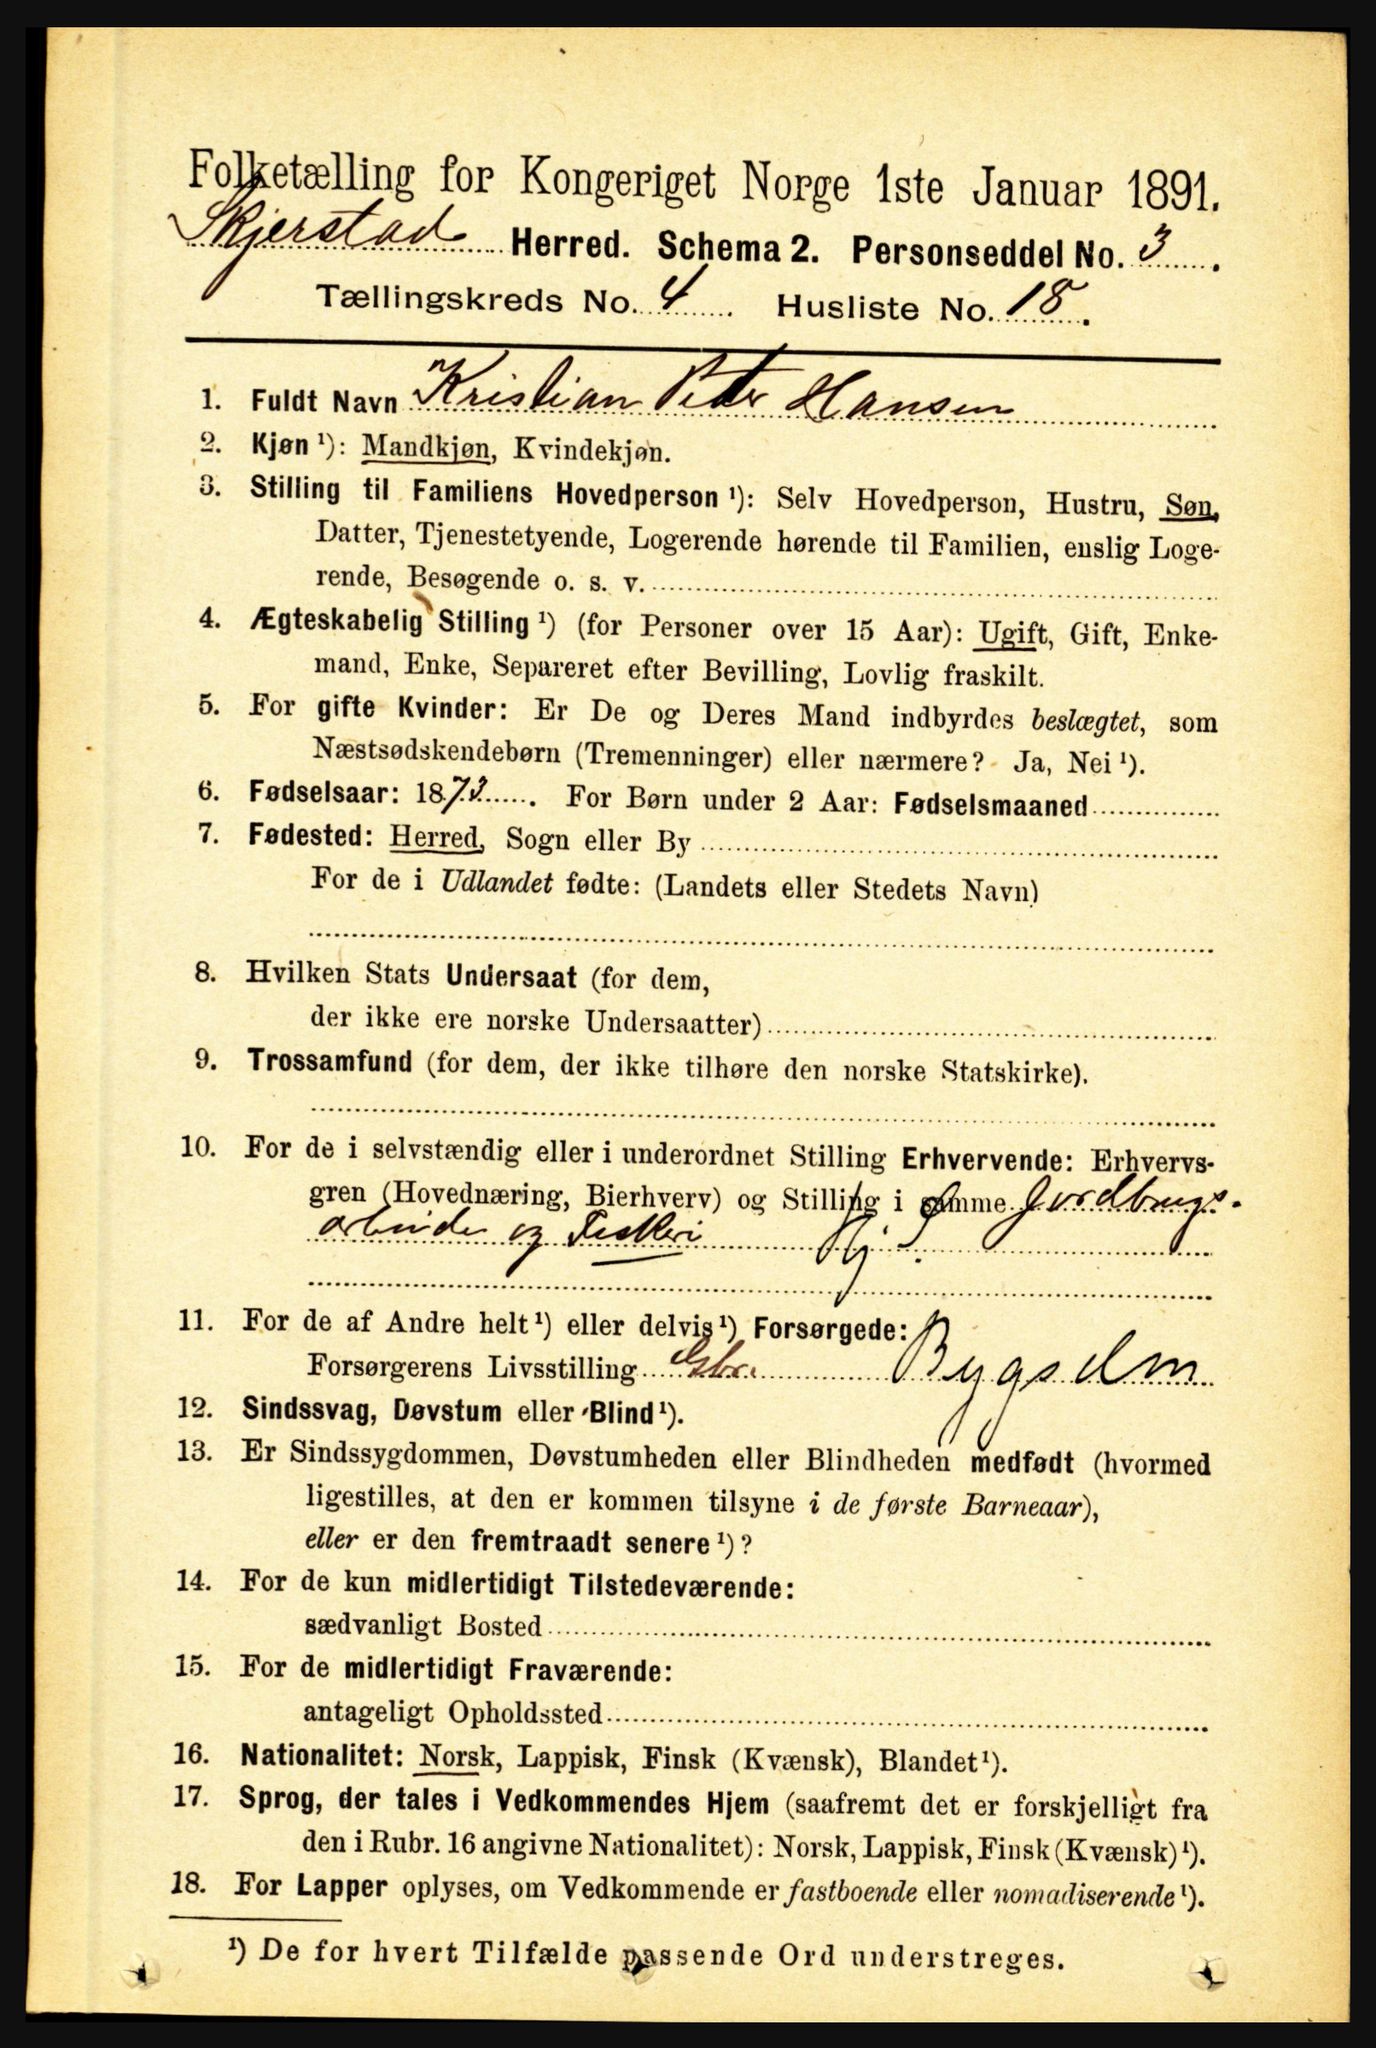 Folketælling for Kongeriget Norge 1ste Januar 1891.
Skjerstad Herred. Schema 2. Personseddel No. 3.
Tællingskreds No. 4 Husliste No. 18.
1. Fuldt Navn Kristian Peter Hansen
2. Kjøn ¹): Mandkjøn, Kvindekjøn.
3. Stilling til Familiens Hovedperson ¹): Selv Hovedperson, Hustru, Søn,
Datter, Tjenestetyende, Logerende hørende til Familien, enslig Loge-
rende, Besøgende o. s. v.
4. Ægteskabelig Stilling ¹) (for Personer over 15 Aar): Ugift, Gift, Enke-
mand, Enke, Separeret efter Bevilling, Lovlig fraskilt.
5. For gifte Kvinder: Er De og Deres Mand indbyrdes beslægtet, som
Næstsødskendebørn (Tremenninger) eller nærmere? Ja, Nei ¹).
6. Fødselsaar: 1873. For Børn under 2 Aar: Fødselsmaaned
7. Fødested: Herred, Sogn eller By
For de i Udlandet fødte: (Landets eller Stedets Navn)
8. Hvilken Stats Undersaat (for dem,
der ikke ere norske Undersaatter)
9. Trossamfund (for dem, der ikke tilhøre den norske Statskirke).
10. For de i selvstændig eller i underordnet Stilling Erhvervende: Erhvervs-
gren (Hovednæring, Bierhverv) og Stilling i samme Jordbrugs-
arbeide og Fiskeri
11. For de af Andre helt ¹) eller delvis ¹) Forsørgede:
Forsørgerens Livsstilling Gbr. Bygselm
12. Sindssvag, Døvstum eller Blind ¹).
13. Er Sindssygdommen, Døvstumheden eller Blindheden medfødt (hvormed
ligestilles, at den er kommen tilsyne i de første Barneaar),
eller er den fremtraadt senere ¹)?
14. For de kun midlertidigt Tilstedeværende:
sædvanligt Bosted
15. For de midlertidigt Fraværende:
antageligt Opholdssted
16. Nationalitet: Norsk, Lappisk, Finsk (Kvænsk), Blandet ¹).
17. Sprog, der tales i Vedkommendes Hjem (saafremt det er forskjelligt fra
den i Rubr. 16 angivne Nationalitet): Norsk, Lappisk, Finsk (Kvænsk) ¹).
18. For Lapper oplyses, om Vedkommende er fastboende eller nomadiserende ¹).
¹) De for hvert Tilfælde passende Ord understreges.